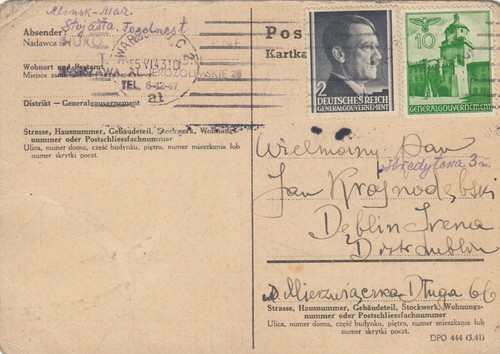 Mińsk-Maz.
Absender:
Nadawca:
BIURO
WAR
C 2
25 VI 43 10
a1
TEL. 6-42-47
Wohnort und Postamt
Miejsce zam
Distrikt — Generalgouvernement
Strasse, Hausnummer, Gebäudeteil, Stockwerk, Wohnungs-
nummer oder Postschliessfachnummer
Ulica, numer domu, część budynku, piętro, numer mieszkania lub
nr skrytki poczt.
Pos
Kartka
2
DEUTSCHES REICH
GENERALGOUVERNEMENT
10
GENERALGOUVERNEMENT
Wielmożny Pan
Kredytowa 3 m.
Jan Krajnodębski
Dęblin Irena
Distr. Lublin
Mierzwiączka Długa 66
Strasse, Hausnummer, Gebäudeteil, Stockwerk, Wohnungs-
nummer oder Postschliessfachnummer
Ulica, numer domu, część budynku, piętro, numer mieszkania lub
nr skrytki poczt.
DPO 444 (3.41)